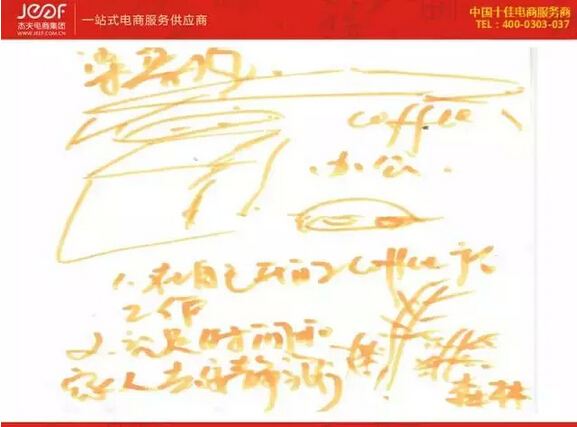 JEEF
杰夫电商集团
WWW.JEEF.COM.CN
一站式电商服务供应商
中国十佳电商服务商
TEL：400-0303-037
coffee
办公
1. 在自己开的coffee厅
工作
2. 就是时间和
家人去
森林